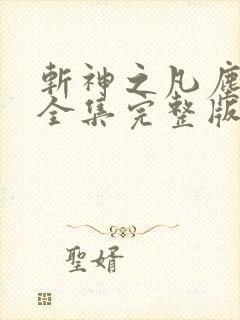 斬神之凡塵
全集完整版
聖婿